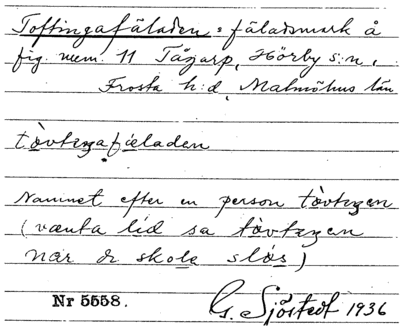 Toftingafäladen = fäladsmark å
fig. num. 11 Tågarp, Hörby s:n,
Frosta h:d, Malmöhus län
tòvtıŋafı̨eladen
Namnet efter en person tòvtıŋen
(vænta líd sa tòvtıŋen
når de skole slós)
Nr 5558.
G. Sjöstedt 1936